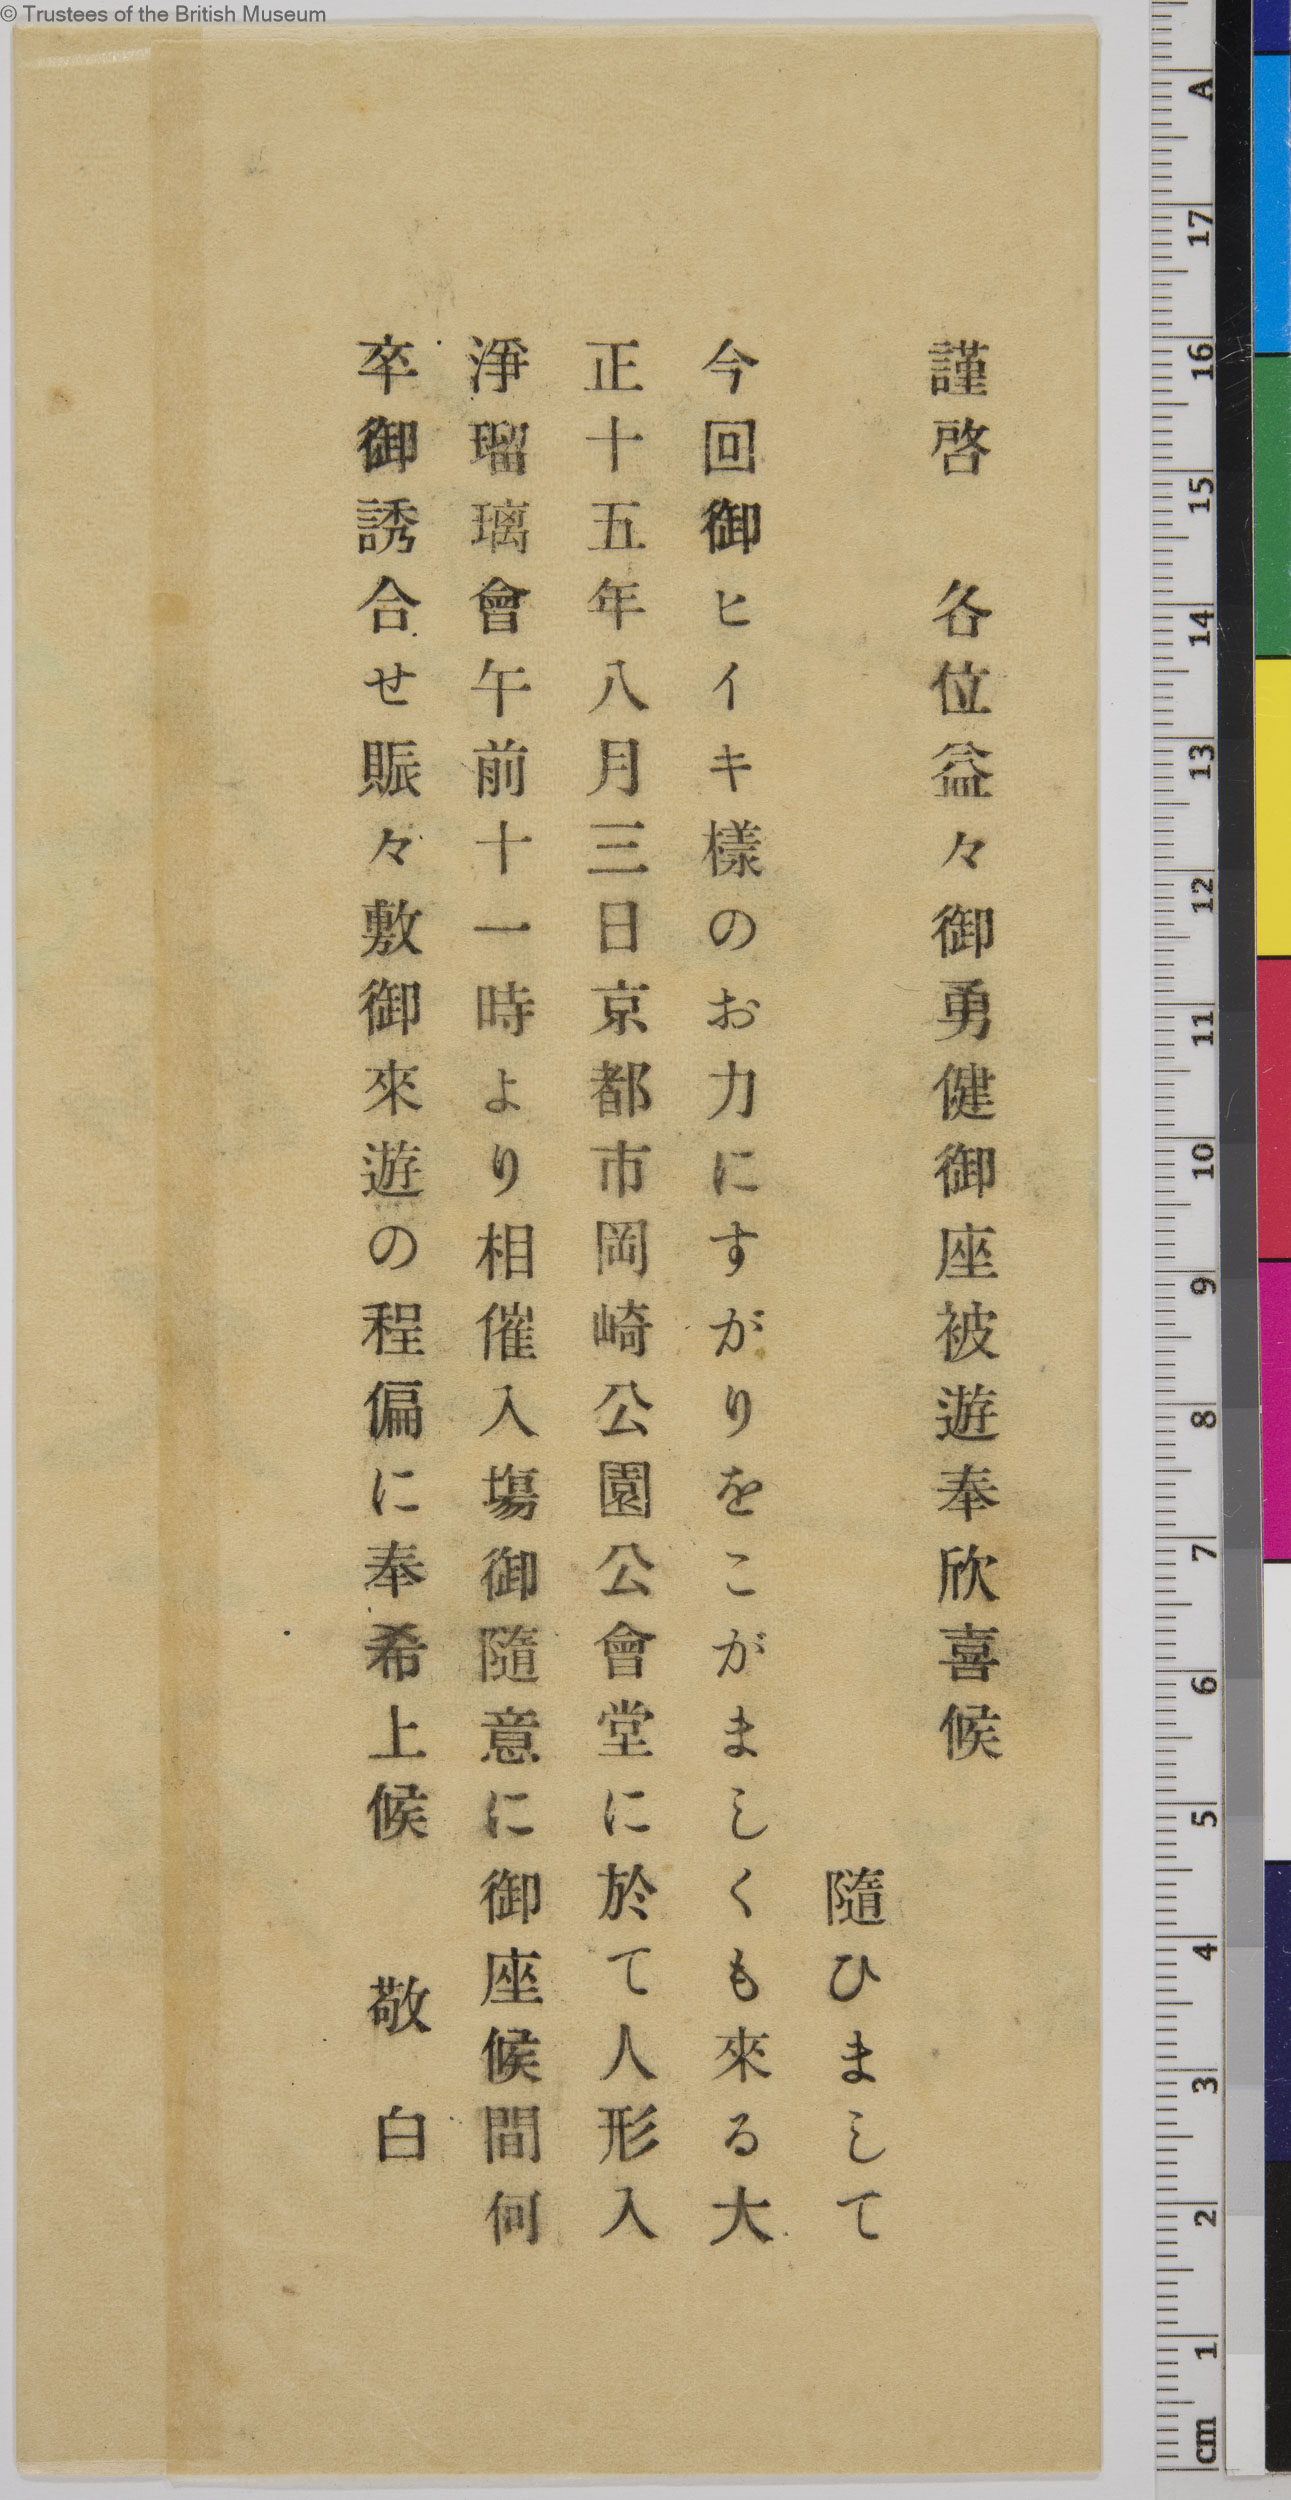 © Trustees of the British Museum
謹啓　各位益々御勇健御座被遊奉欣喜候
隨ひまして
今回御ヒイキ樣のお力にすがりをこがましくも來る大
正十五年八月三日京都市岡崎公園公會堂に於て人形入
淨瑠璃會午前十一時より相催入塲御隨意に御座候間何
卒御誘合せ賑々敷御來遊の程偏に奉希上候　敬白
A
17
16
15
14
13
12
11
10
9
8
7
6
5
4
3
2
1
cm